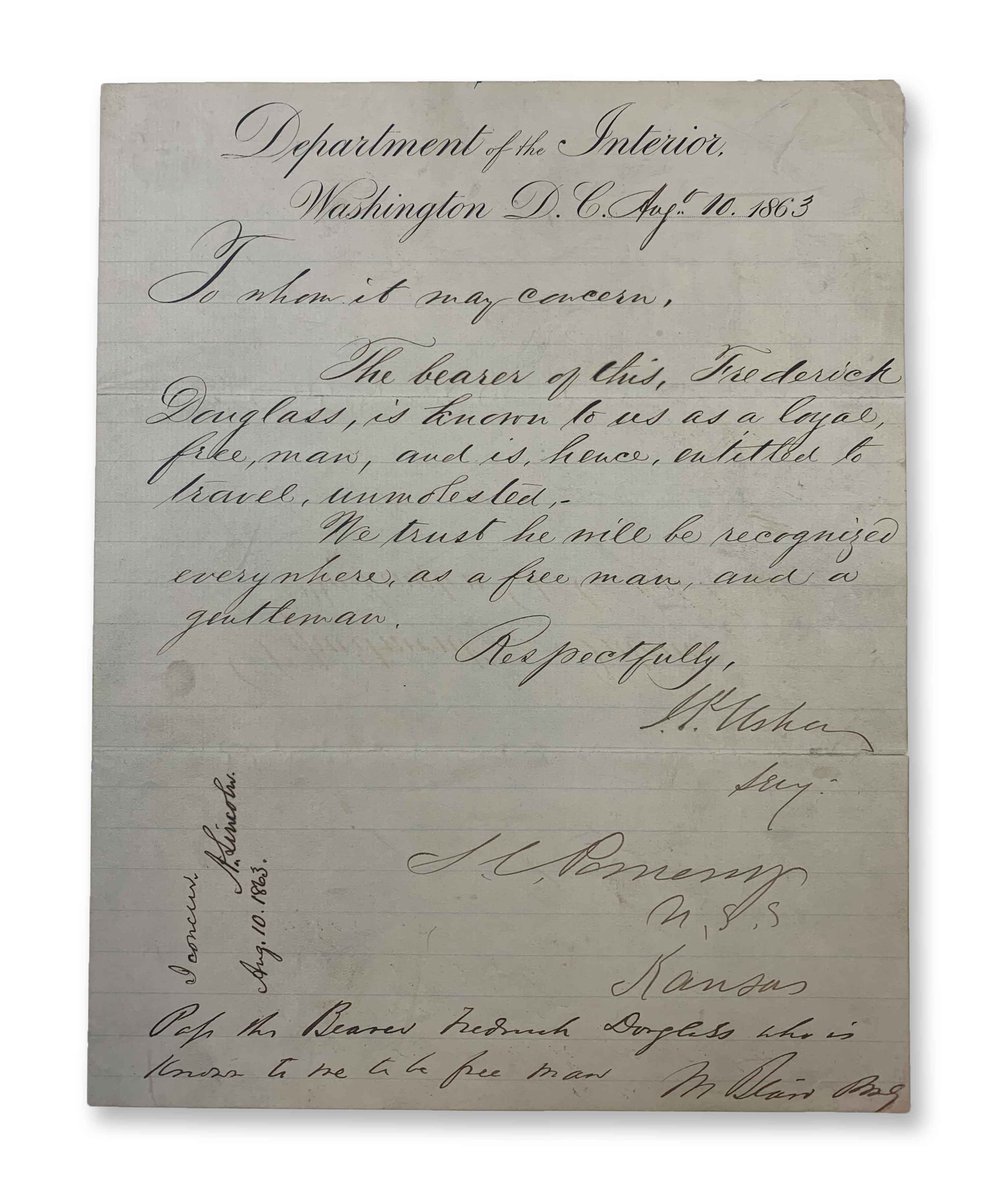 Department of the Interior,
Washington D. C. Augt. 10. 1863
To whom it may concern,
The bearer of this, Frederick
Douglass, is known to us as a loyal,
free, man, and is, hence, entitled to
travel, unmolested,-
We trust he will be recognized
everywhere, as a free man, and a
gentleman.
Respectfully,
J. P. Usher
Secy.
S. C. Pomeroy
U. S. S
Kansas
I concur.
A. Lincoln.
Aug. 10. 1863.
Pass the Bearer Fredrick Douglass who is
Known to me to be free man
M Blair